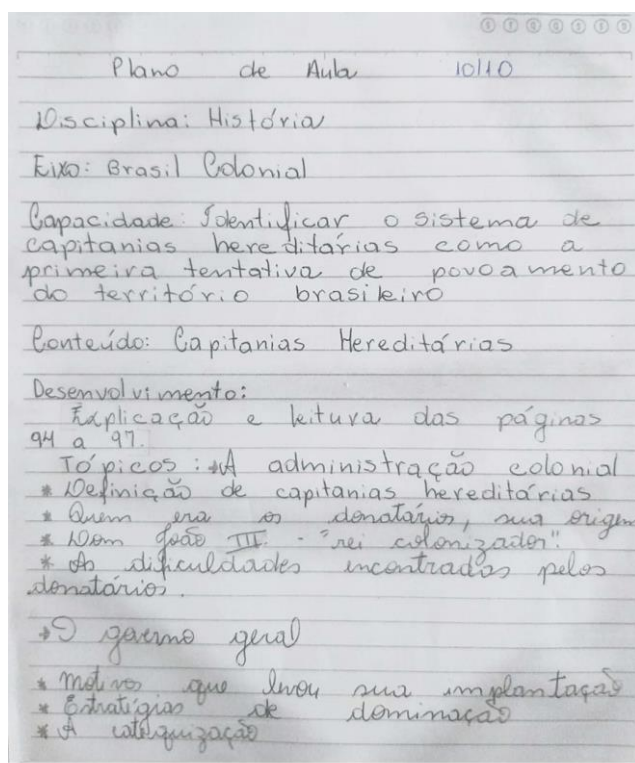 Plano de Aula 10/10
Disciplina: História
Eixo: Brasil Colonial
Capacidade: Identificar o sistema de
capitanias hereditárias como a
primeira tentativa de povoamento
do território brasileiro
Conteúdo: Capitanias Hereditárias
Desenvolvimento:
Explicação e leitura das páginas
94 a 97.
Tópicos: → A administração colonial
* Definição de capitanias hereditárias
* Quem era os donatários, sua origem
* Dom João III - "rei colonizador".
* As dificuldades encontradas pelos
donatários.
→ O governo geral
* Motivos que levou sua implantação
* Estratégias de dominação
* A catequização